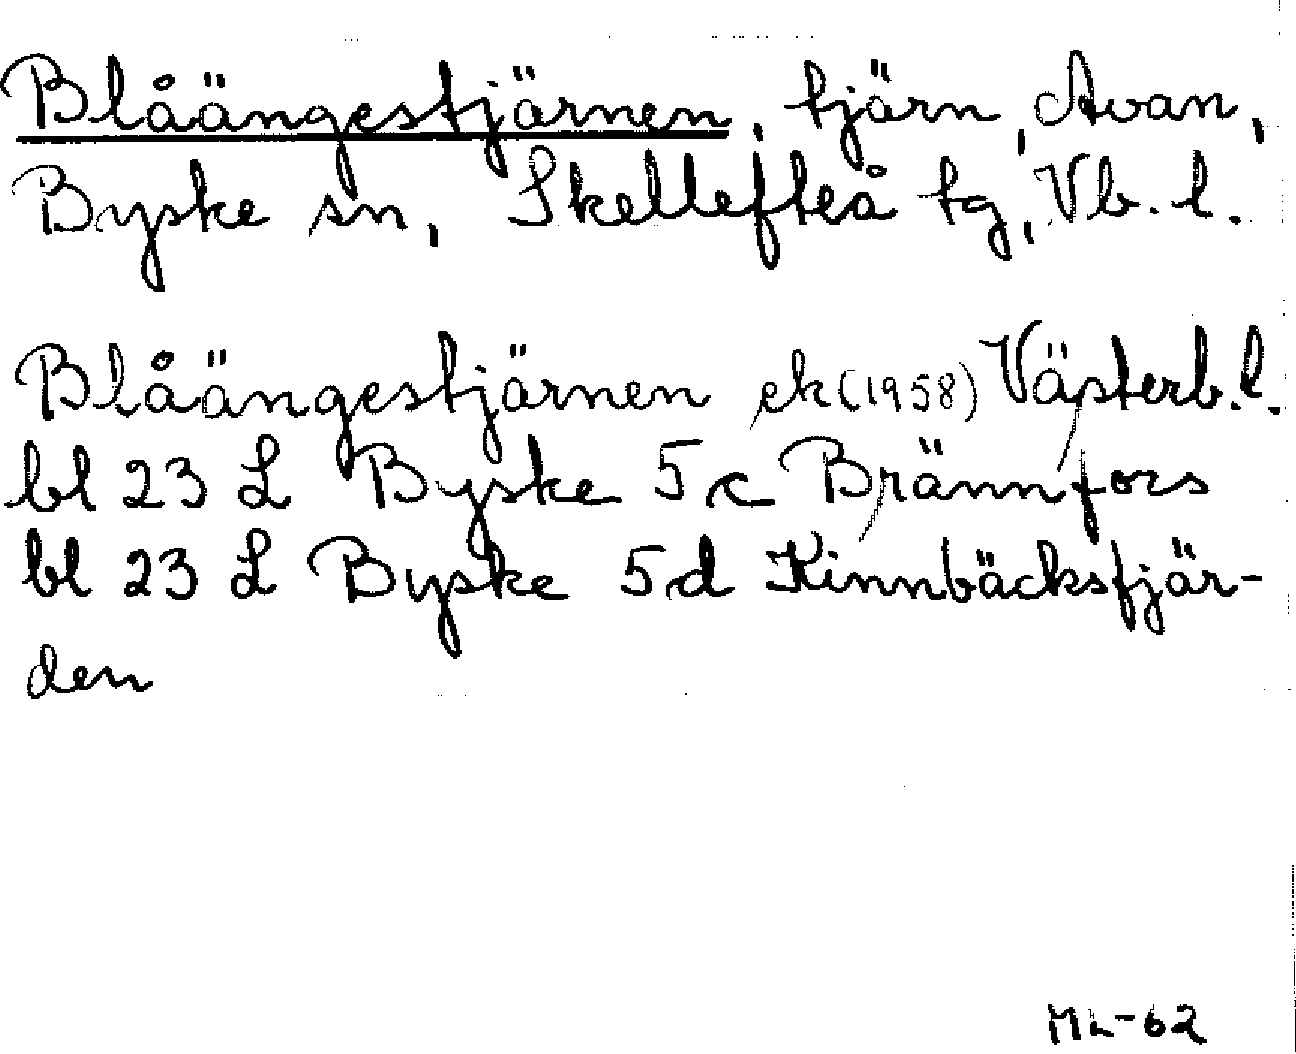 Blåängestjärnen, tjärn, Avan,
Byske sn, Skellefteå tg, Vb. l.
Blåängestjärnen ek (1958) Västerb. l.
bl 23 L Byske 5 c Brännfors
bl 23 L Byske 5 d Kinnbäcksfjär-
den
ML-62